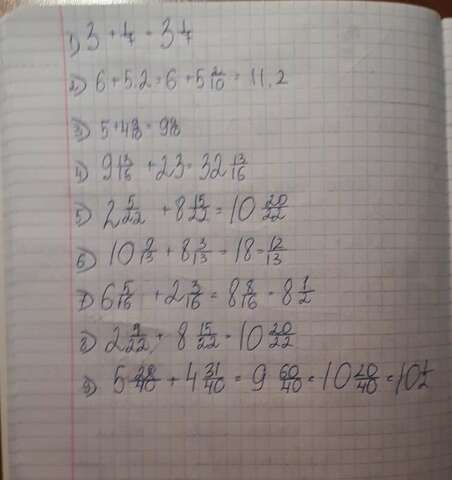 1) 3 + 4 = 34
2) 6 + 5.2 = 6 + 5 2/10 = 11.2
3) 5 + 4
4) 9 13/16 + 23 = 32 13/16
5) 2 5/22 + 8 15/22 = 10 20/22
6) 10 9/13 + 8 3/13 = 18 12/13
7) 6 5/16 + 2 3/16 = 8 8/16 = 8 1/2
8) 2 9/22 + 8 15/22 = 10 20/22
9) 5 + 4 31/40 = 9 60/40 = 10 20/40 = 10 1/2